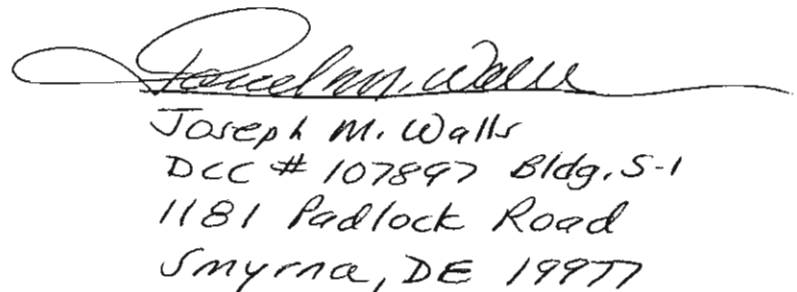 Joseph M. Walls
Joseph M. Walls
DCC # 107897 Bldg. S-1
1181 Padlock Road
Smyrna, DE 19977